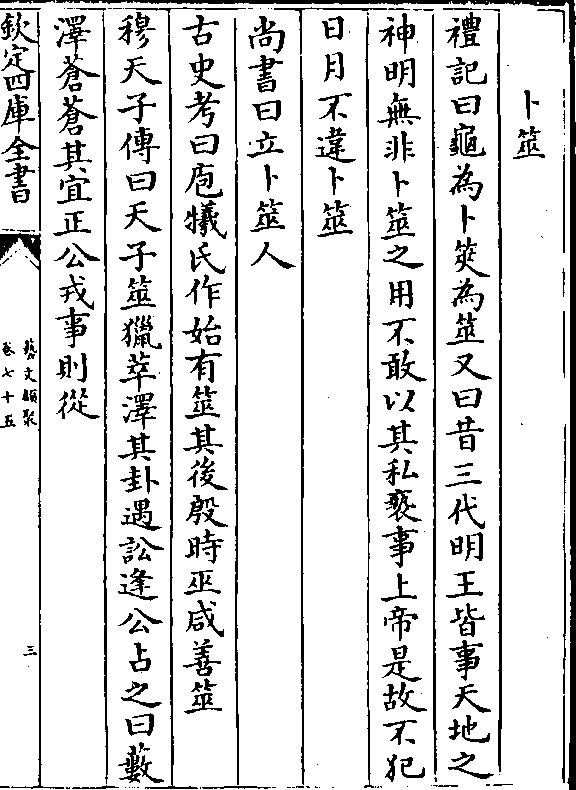 卜筮
禮記曰龜為卜筴為筮又曰昔三代明王皆事天地之
神明無非卜筮之用不敢以其私褻事上帝是故不犯
日月不違卜筮
尚書曰立卜筮人
古史考曰庖犧氏作始有筮其後殷時巫咸善筮
穆天子傳曰天子筮獵苹澤其卦遇訟逢公占之曰藪
澤蒼蒼其宜正公戎事則從
欽定四庫全書
藝文類聚
卷七十五
三